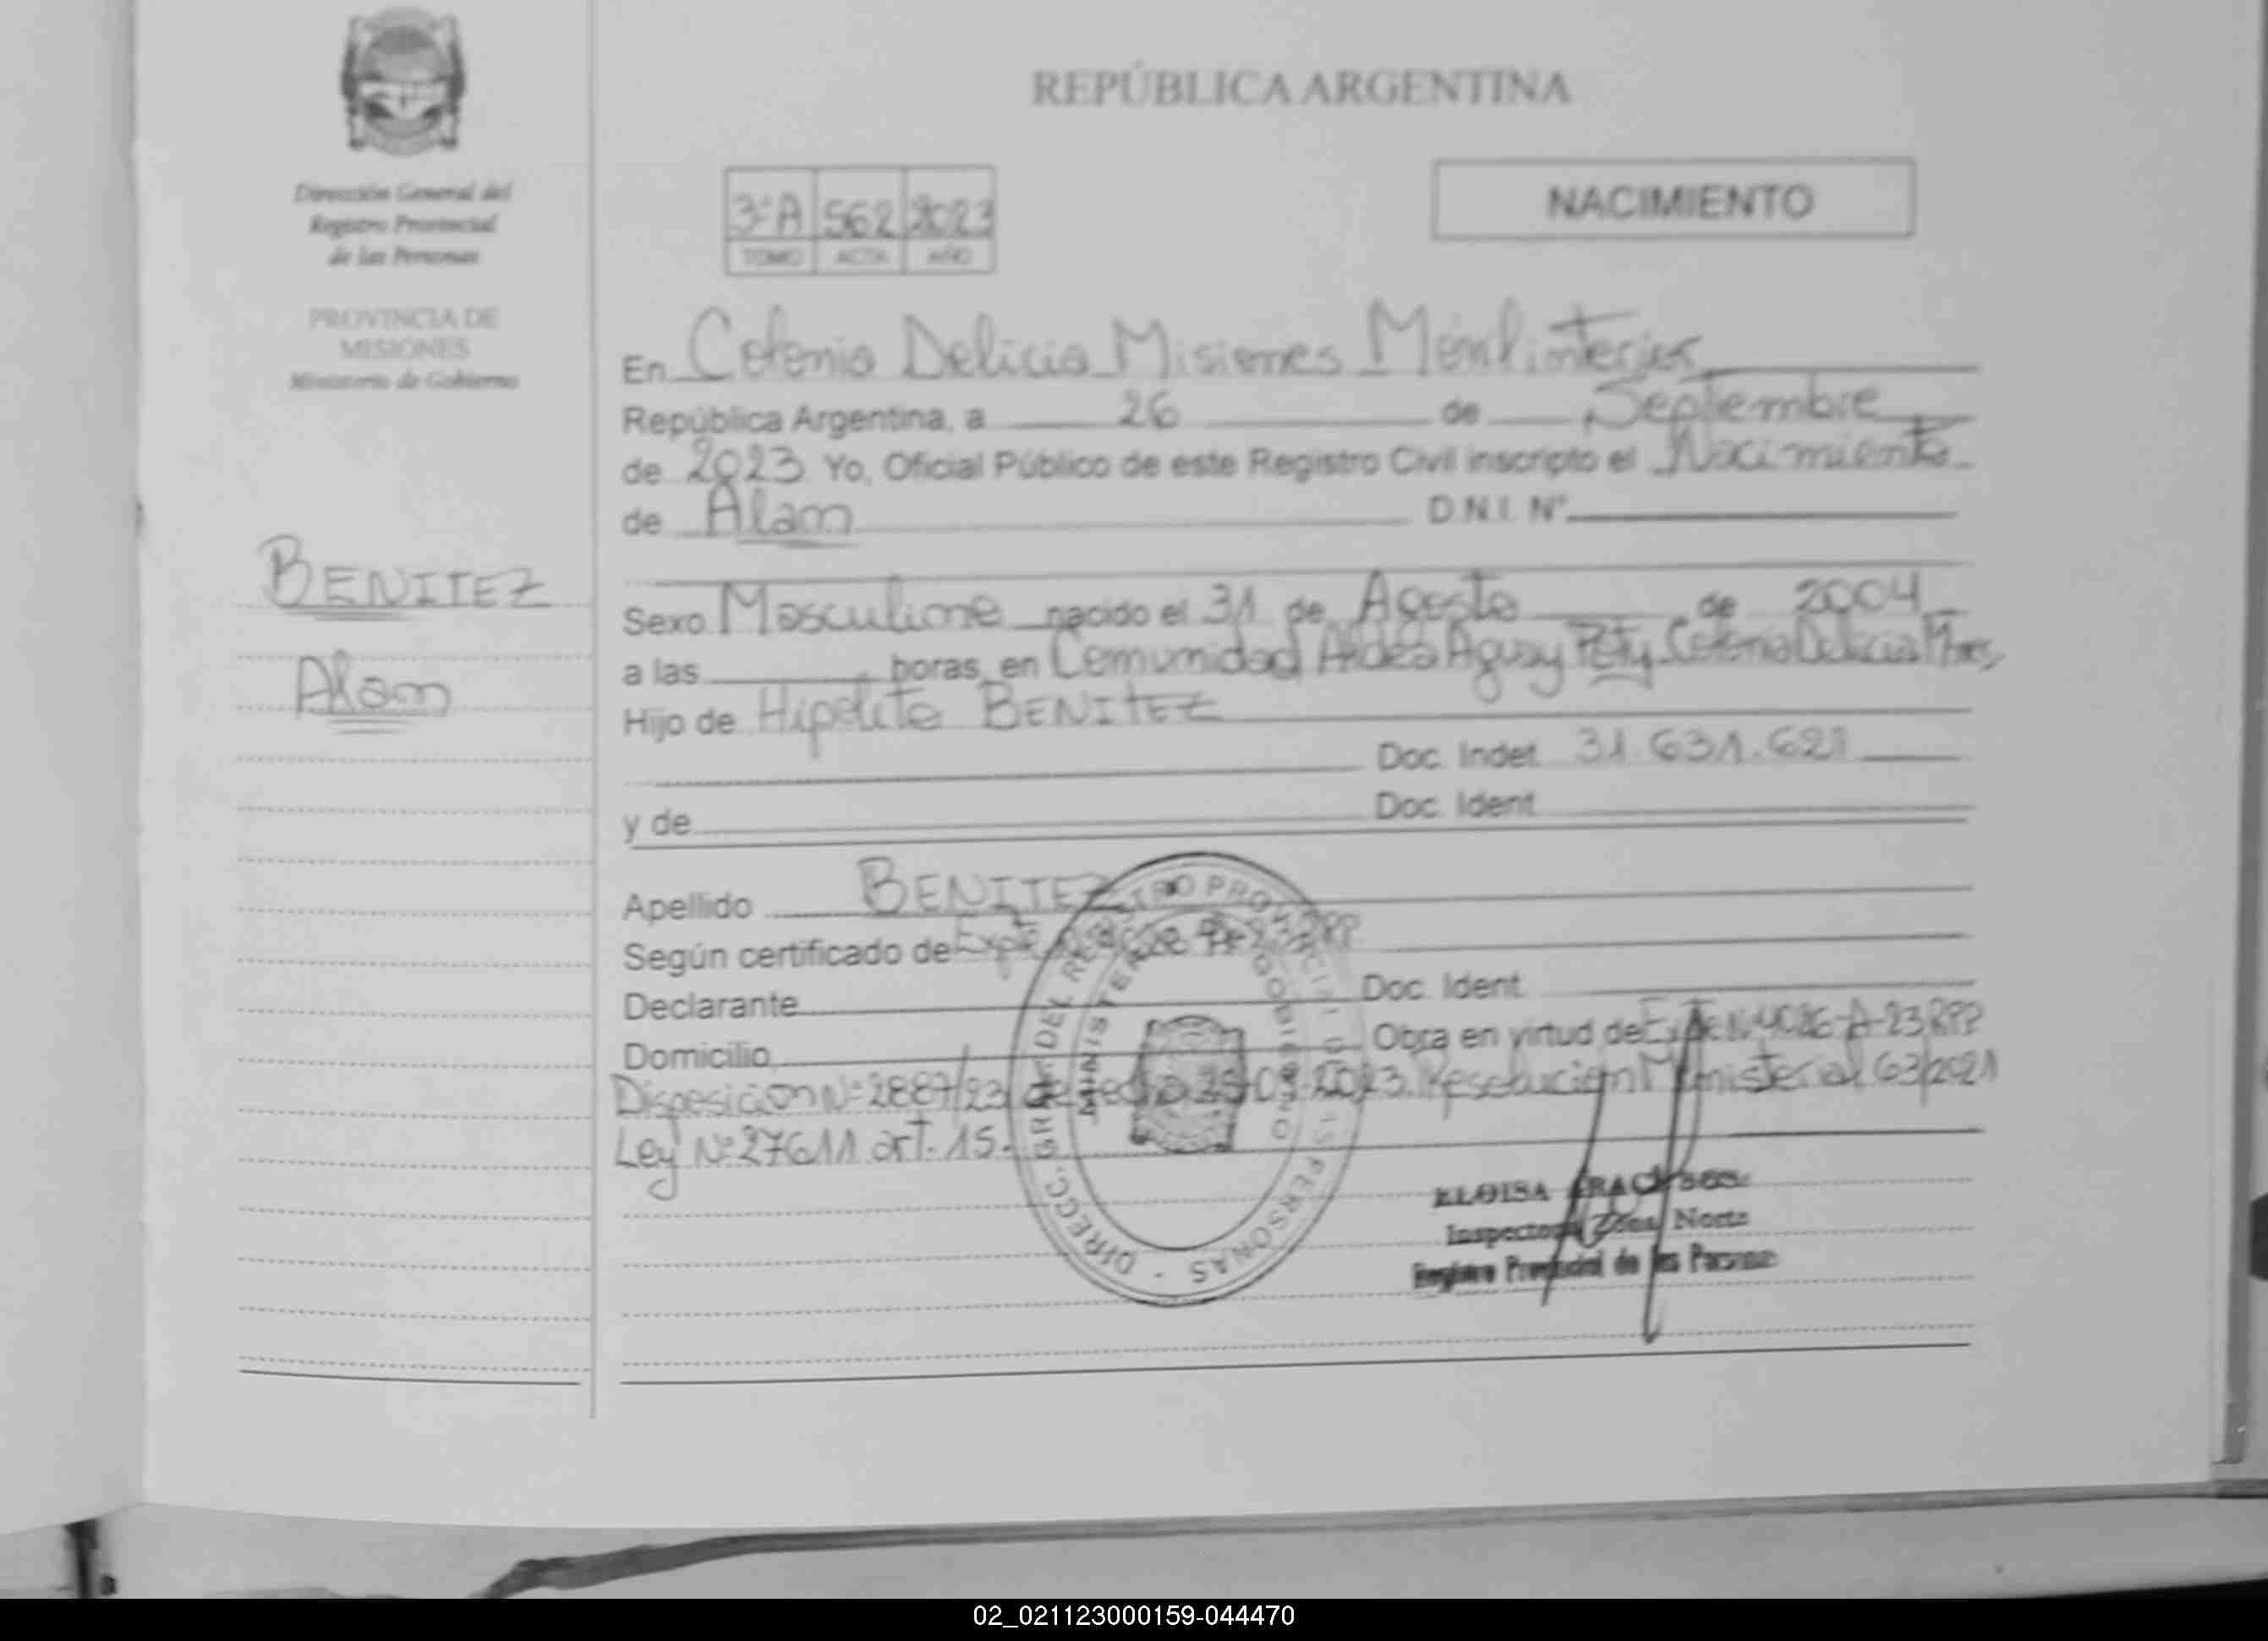 REPÚBLICA ARGENTINA
Dirección General del
Registro Provincial
de las Personas
PROVINCIA DE
MISIONES
Ministerio de Gobierno
3°A 562 2023
TOMO ACTA AÑO
NACIMIENTO
En Colonia Delicia Misiones
República Argentina, a 26 de Septiembre
de 2023 Yo, Oficial Público de este Registro Civil inscripto el Nacimiento
de Alam D.N.I. N°
BENITEZ
Alam
Sexo Masculino nacido el 31 de Agosto de 2004
a las horas, en Comunidad Aldea Aguay Poty Colonia Delicia Mnes,
Hijo de Hipolito BENITEZ
Doc. Indet. 31.631.621
y de Doc. Ident.
Apellido BENITEZ
Según certificado de Expte
Declarante Doc. Ident.
Domicilio Obra en virtud de Expte N° A-23 RPP
Disposicion N° 2887/23 de fecha 2023. Resolucion Ministerial 63/2021
Ley N° 27611 art. 15.
DIRECC. GRAL. DEL REGISTRO PROVINCIAL DE LAS PERSONAS -
MINISTERIO DE GOBIERNO
ELOISA
Inspectora Zona Norte
Registro Provincial de las Personas
02_021123000159-044470